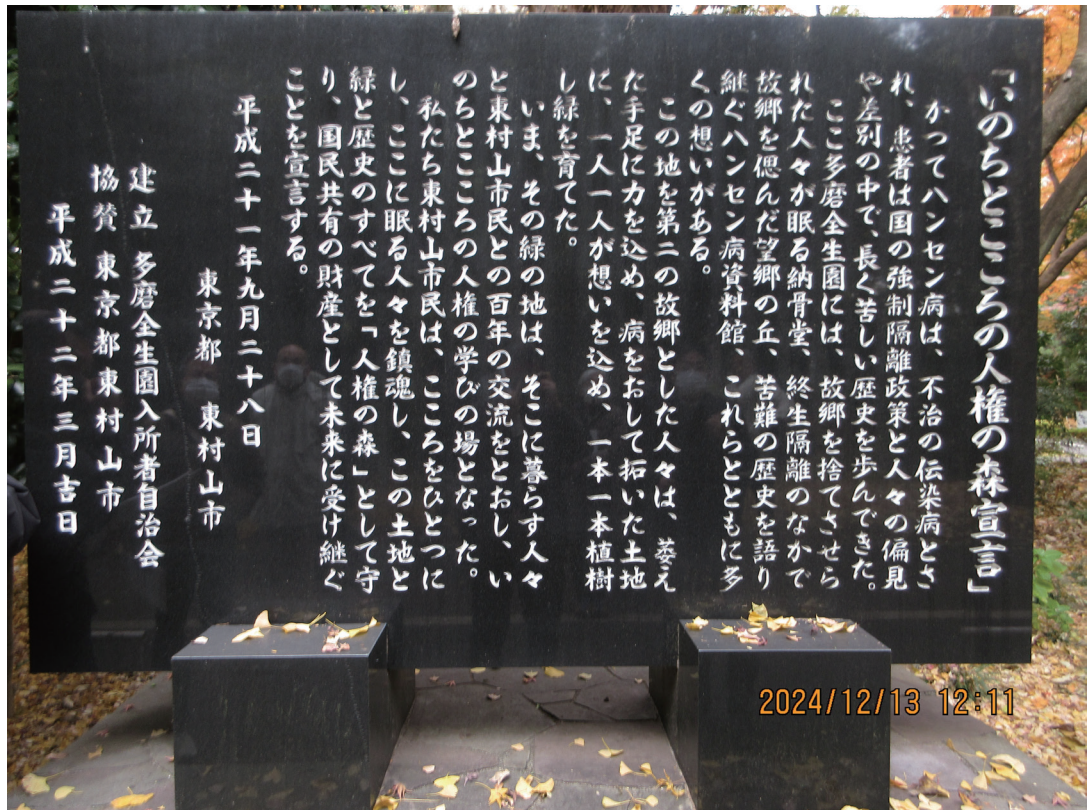 「いのちとこころの人権の森宣言」
かつてハンセン病は、不治の伝染病とさ
れ、患者は国の強制隔離政策と人々の偏見
や差別の中で、長く苦しい歴史を歩んできた。
ここ多磨全生園には、故郷を捨てさせら
れた人々が眠る納骨堂、終生隔離のなかで
故郷を偲んだ望郷の丘、苦難の歴史を語り
継ぐハンセン病資料館、これらとともに多
くの想いがある。
この地を第二の故郷とした人々は、萎え
た手足に力を込め、病をおして拓いた土地
に、一人一人が想いを込め、一本一本植樹
し緑を育てた。
いま、その緑の地は、そこに暮らす人々
と東村山市民との百年の交流をとおし、い
のちとこころの人権の学びの場となった。
私たち東村山市民は、こころをひとつに
し、ここに眠る人々を鎮魂し、この土地と
緑と歴史のすべてを「人権の森」として守
り、国民共有の財産として未来に受け継ぐ
ことを宣言する。
平成二十一年九月二十八日
東京都 東村山市
建立 多磨全生園入所者自治会
協賛 東京都東村山市
平成二十二年三月吉日
2024/12/13 12:11